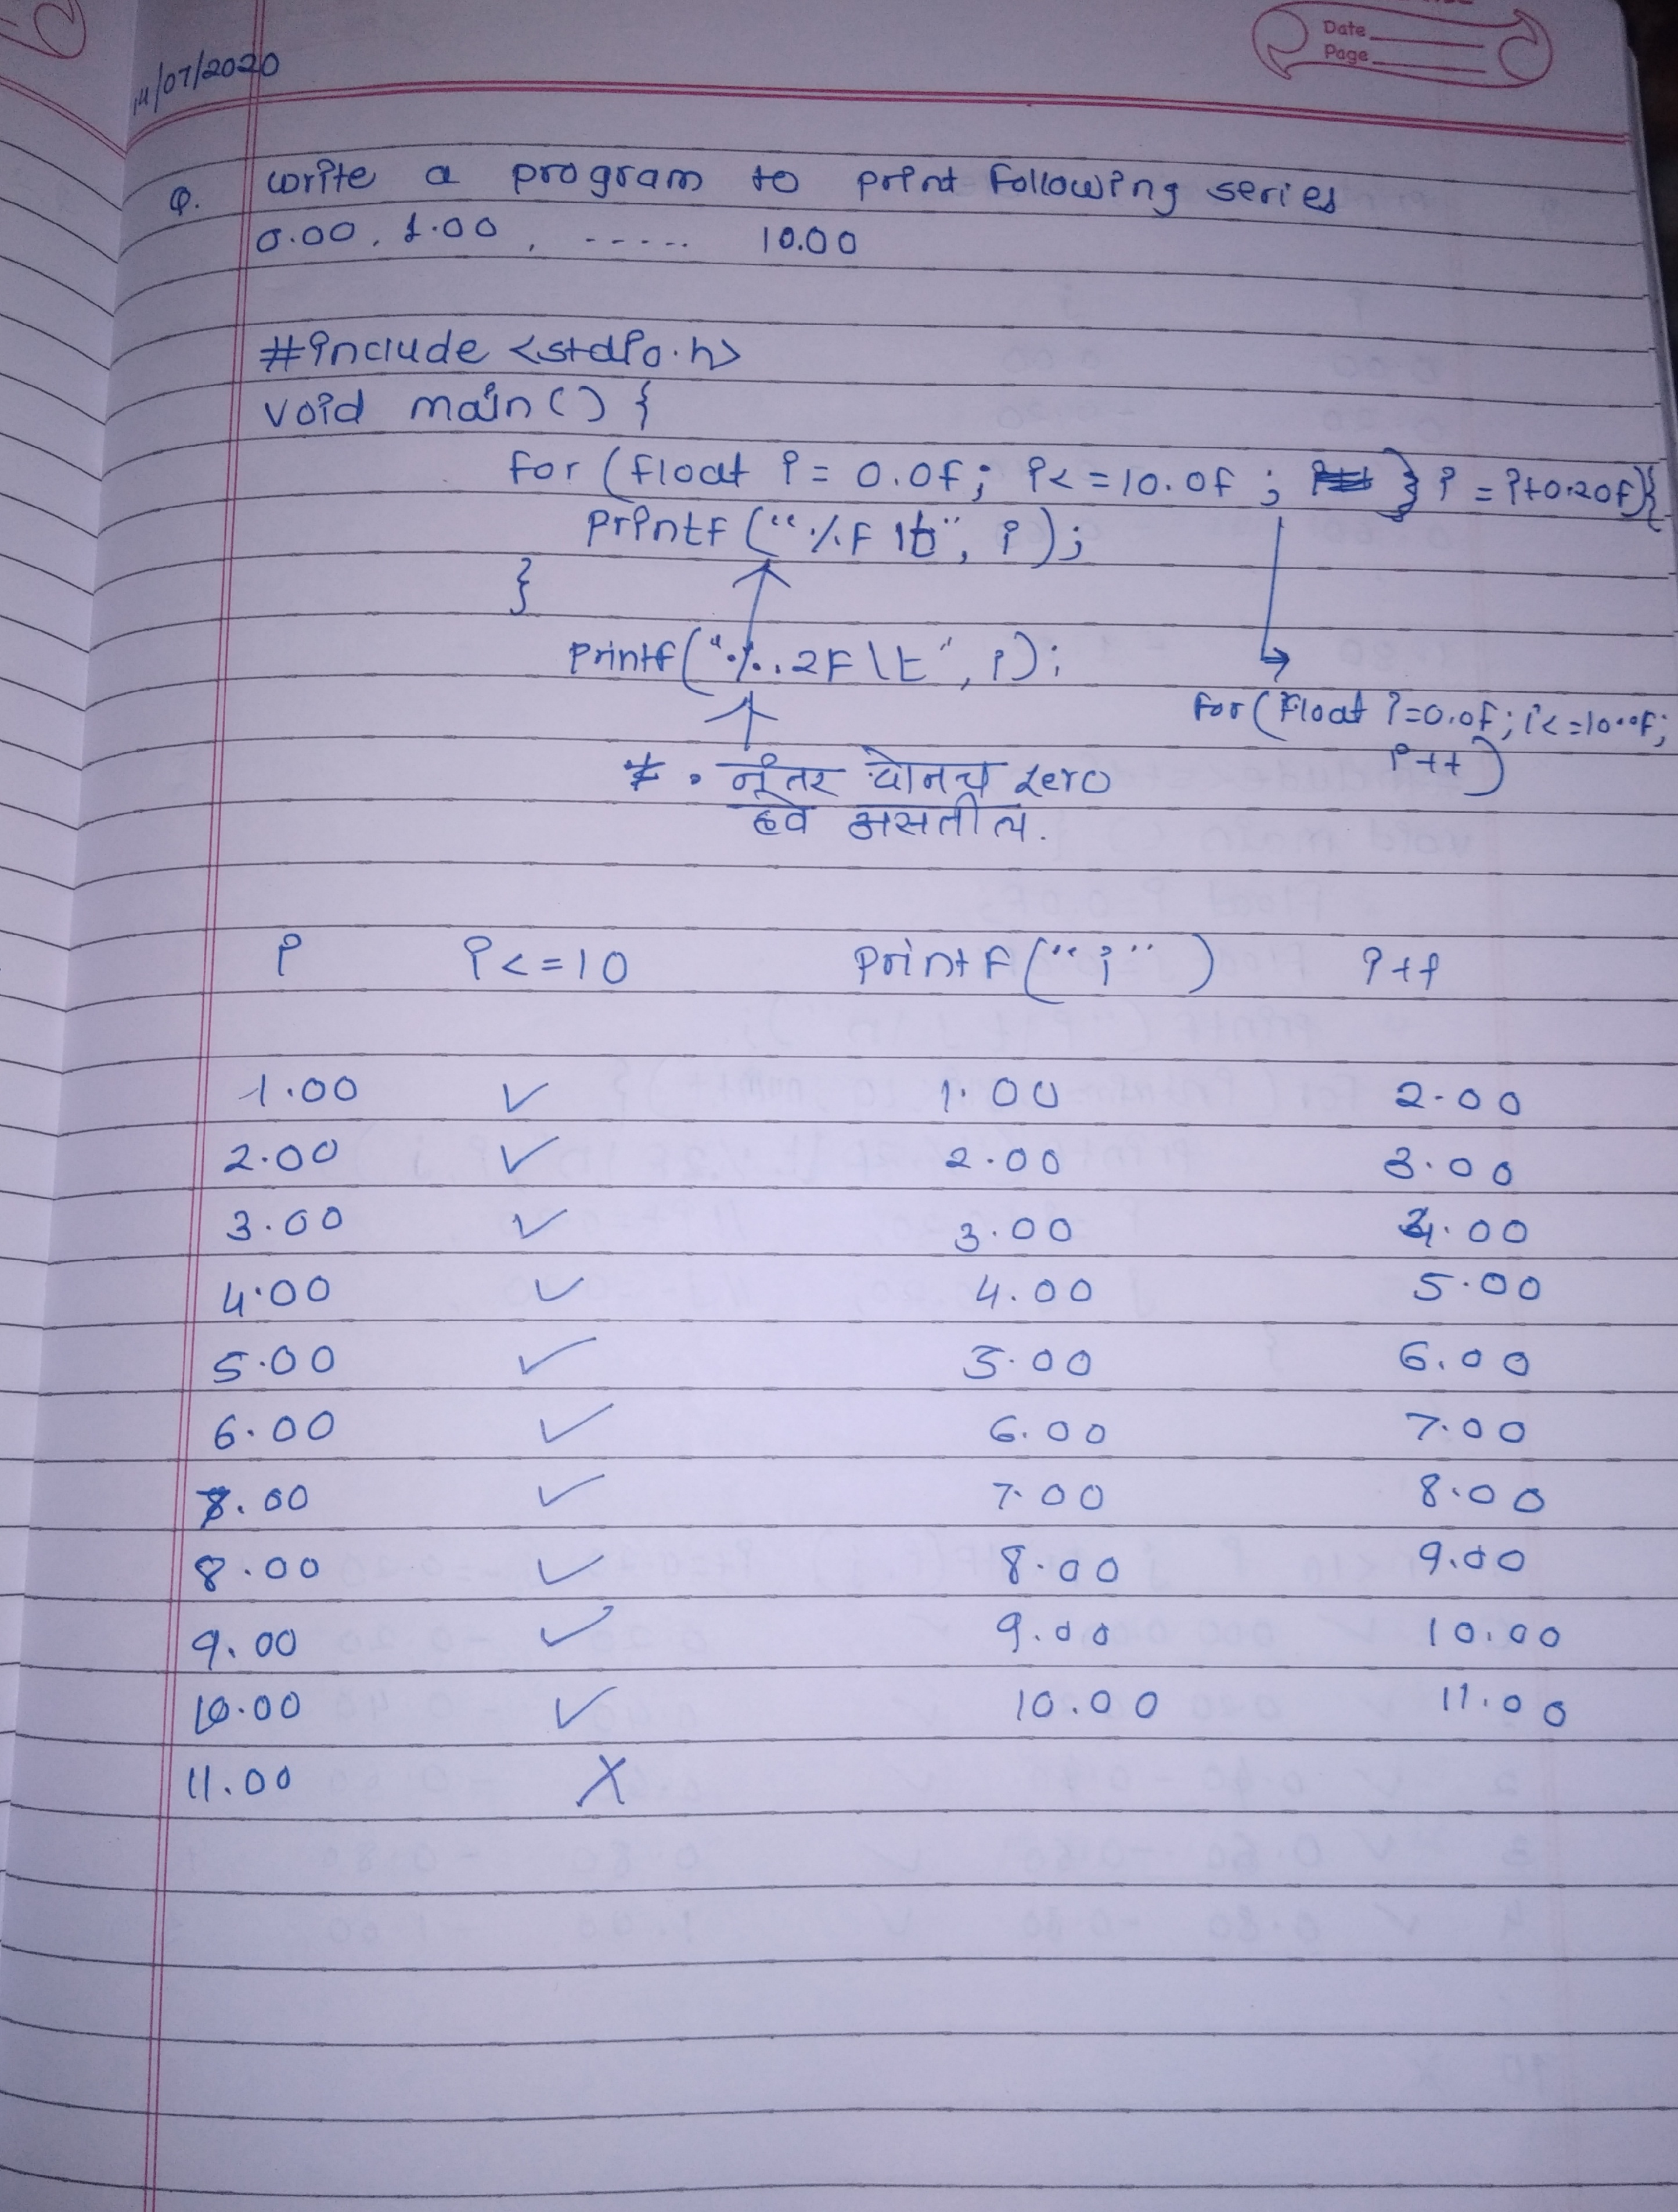 Date
Page
14/07/2020
Q. write a program to print following series
0.00, 1.00, ..... 10.00
#include <stdio.h>
void main() {
for (float i = 0.0f; i<=10.0f ; } i = i+0.20f){
printf ("%f \t", i);
}
printf("%.2f\t", i);
for (float i=0.0f; i<=10.0f;
i++)
* . नंतर दोनच zero
हवे असतील.
i i<=10 printf("i") i++
1.00 ✓ 1.00 2.00
2.00 ✓ 2.00 3.00
3.00 ✓ 3.00 4.00
4.00 ✓ 4.00 5.00
5.00 ✓ 5.00 6.00
6.00 ✓ 6.00 7.00
7.00 ✓ 7.00 8.00
8.00 ✓ 8.00 9.00
9.00 ✓ 9.00 10.00
10.00 ✓ 10.00 11.00
11.00 X